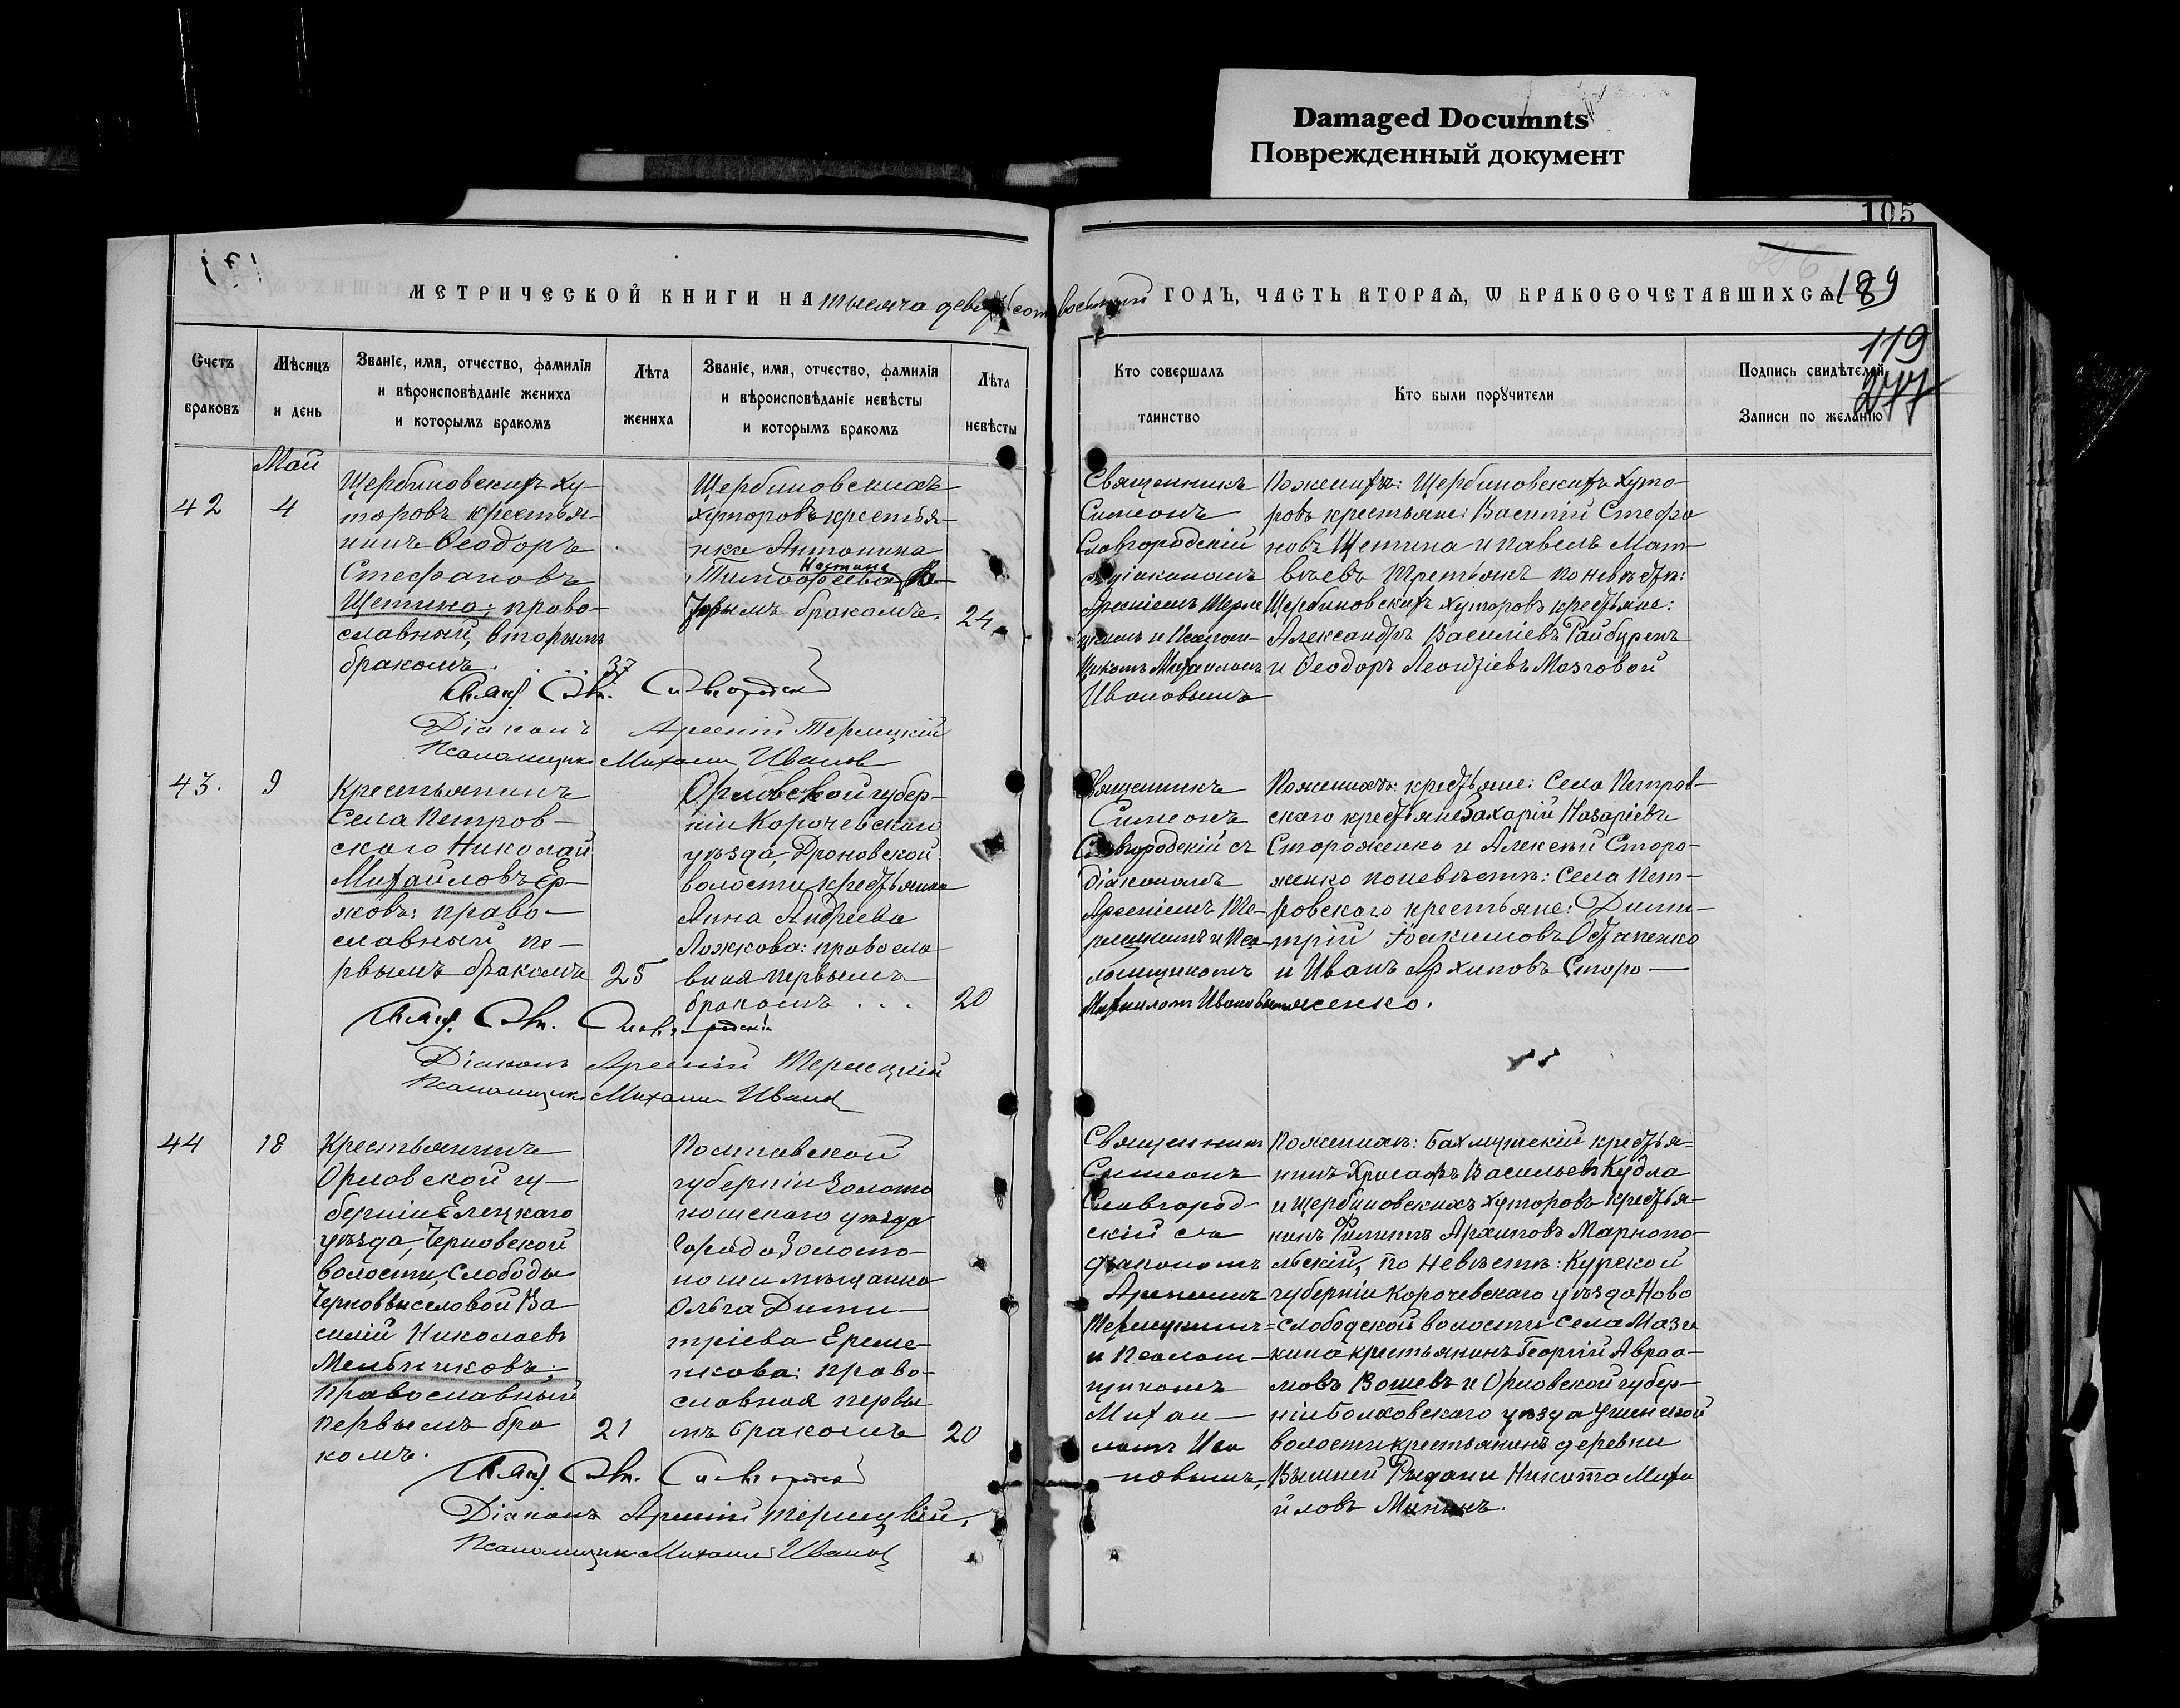 Damaged Documnts
Поврежденный документ
105
189
119
277
МЕТРИЧЕСКОЙ КНИГИ НА тысяча девятьсот восьмый ГОДЪ, ЧАСТЬ ВТОРАЯ, Ѡ БРАКОСОЧЕТАВШИХСЯ
Счетъ браковъ
Мѣсяцъ и день
Званіе, имя, отчество, фамилія
и вѣроисповѣданіе жениха
и которымъ бракомъ
Лѣта жениха
Званіе, имя, отчество, фамилія
и вѣроисповѣданіе невѣсты
и которымъ бракомъ
Лѣта невѣсты
Кто совершалъ таинство
Кто были поручители
Подпись свидѣтелей
Записи по желанію
Май
42
4
Щербиновскихъ Ху-
торовъ крестья-
нинъ Ѳеодоръ
Стефановъ
Щетина: право-
славный, вторымъ
бракомъ.
37
Щербиновскихъ
хуторовъ крестья-
нка Антонина
Тимофеева
бракомъ.
24
Священникъ
Симеонъ
Славгородскій
Арсеніемъ
Михаиломъ
Ивановымъ
По женихѣ: Щербиновскихъ Хуто-
ровъ крестьяне: Василій Стефа
новъ Щетина и Павелъ Мат-
вѣевъ Третьякъ по невѣстѣ:
Щербиновскихъ хуторовъ крестьяне:
Александръ Василіевъ Райбуренъ
и Ѳеодоръ Леонтіевъ Мозговой
Діаконъ Арсеній Терлецкій
Псаломщикъ Михаилъ Иванов
43.
9
Крестьянинъ
Села Петров-
ского Николай
Михайловъ Ер-
жовъ: право-
славный пе-
рвымъ бракомъ
25
Орловской губер-
ніи Корочевскаго
уѣзда, Дроновской
волости, крестьянка
Анна Андреева
Ложкова: правосла
вная первымъ
бракомъ . . .
20
Священникъ
Симеонъ
Славгородскій съ
діакономъ
Арсеніемъ Те-
рлецкимъ и Пса-
ломщикомъ
Михаиломъ Ивановымъ
По женихѣ: крестьяне: Села Петров-
скаго крестьяне Захарій Назаріевъ
Стороженко и Алексѣй Сторо-
женко по невѣстѣ: Села Пет-
ровского крестьяне: Дими-
трій Іоакимовъ Остапенко
и Иванъ Архиповъ Сторо-
женко.
Діаконъ Арсеній Терлецкій
Псаломщикъ Михаилъ Иванов
44
18
Крестьянинъ
Орловской гу-
берніи Елецкаго
уѣзда, Черновской
волости, Слободы
Ва
силій Николаевъ
Мельниковъ:
православный
первымъ бра
комъ.
21
Полтавской
губерніи Золото
ношского уѣзда
Города Золото-
ноши мѣщанка
Ольга Дими-
тріева Ереме-
нкова: право-
славная первы
мъ бракомъ
20
Священникъ
Симеонъ
Славгород-
скій съ
діакономъ
Арсеніемъ
Терлецкимъ=
и Псалом-
щикомъ
Михаи-
ломъ Ива
новымъ,
По женихѣ: Бахмутскій крестья=
нинъ Хрисафъ Васильевъ Кудла
и щербиновскихъ хуторовъ крестья-
нинъ Филиппъ Архиповъ Марнопо-
льскій, по невѣстѣ: Курской
губерніи Корочевскаго уѣзда Ново
слободской волости села Мази
кина крестьянинъ Георгій Авраа-
мовъ Вошевъ и Орловской губер-
ніи Болховского уѣзда
волости крестьянинъ деревни
Вышней Никита Миха
йловъ Мининъ.
Діаконъ Арсеній Терлецкій.
Псаломщикъ Михаилъ Иванов